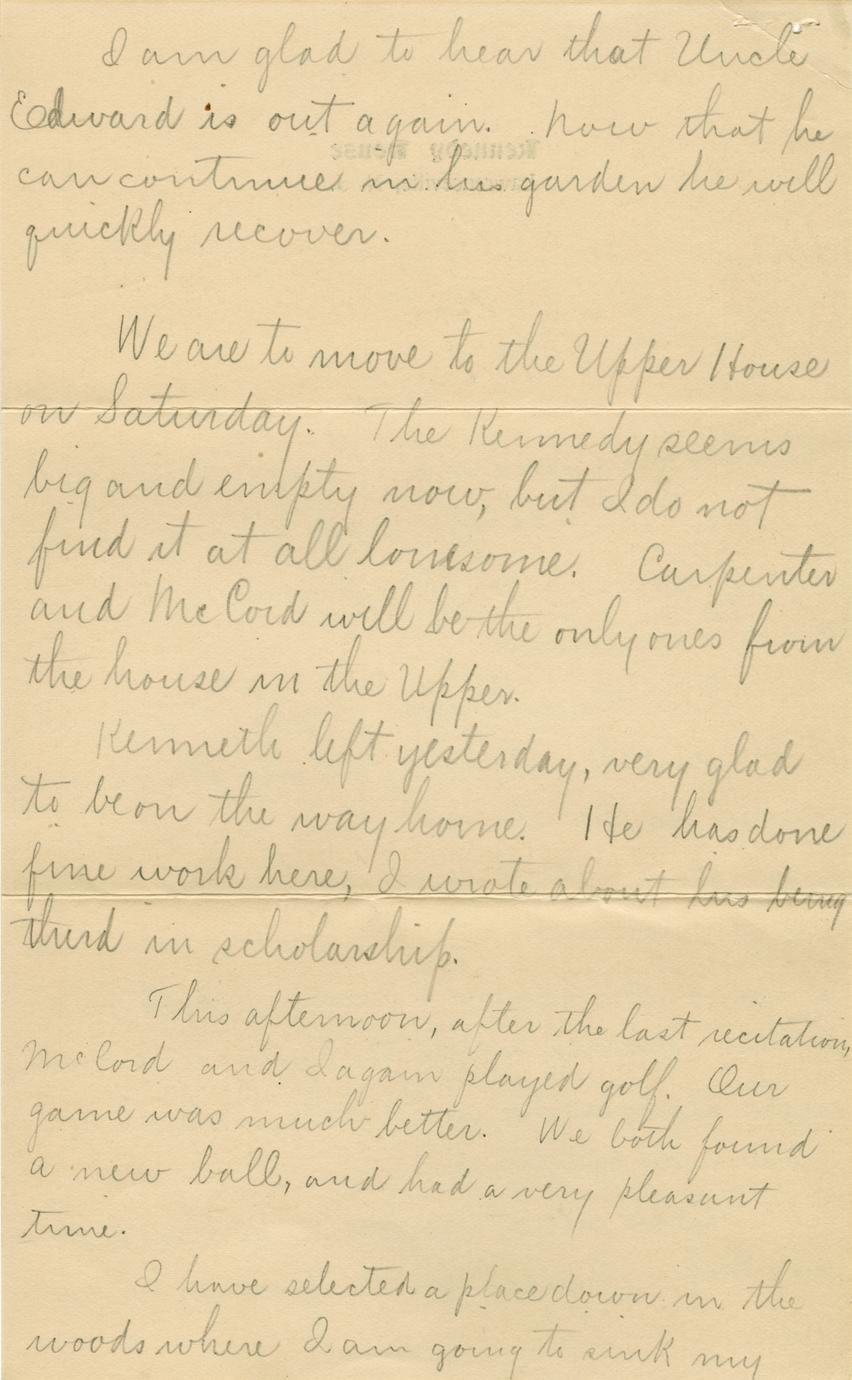 I am glad to hear that Uncle
Edward is out again. Now that he
can continue in his garden he will
quickly recover.
We are to move to the Upper House
on Saturday. The Kennedy seems
big and empty now, but I do not
find it at all lonesome. Carpenter
and McCord will be the only ones from
the house in the Upper.
Kenneth left yesterday, very glad
to be on the way home. He has done
fine work here, I wrote about his being
third in scholarship.
This afternoon, after the last recitation,
McCord and I again played golf. Our
game was much better. We both found
a new ball, and had a very pleasant
time.
I have selected a place down in the
woods where I am going to sink my